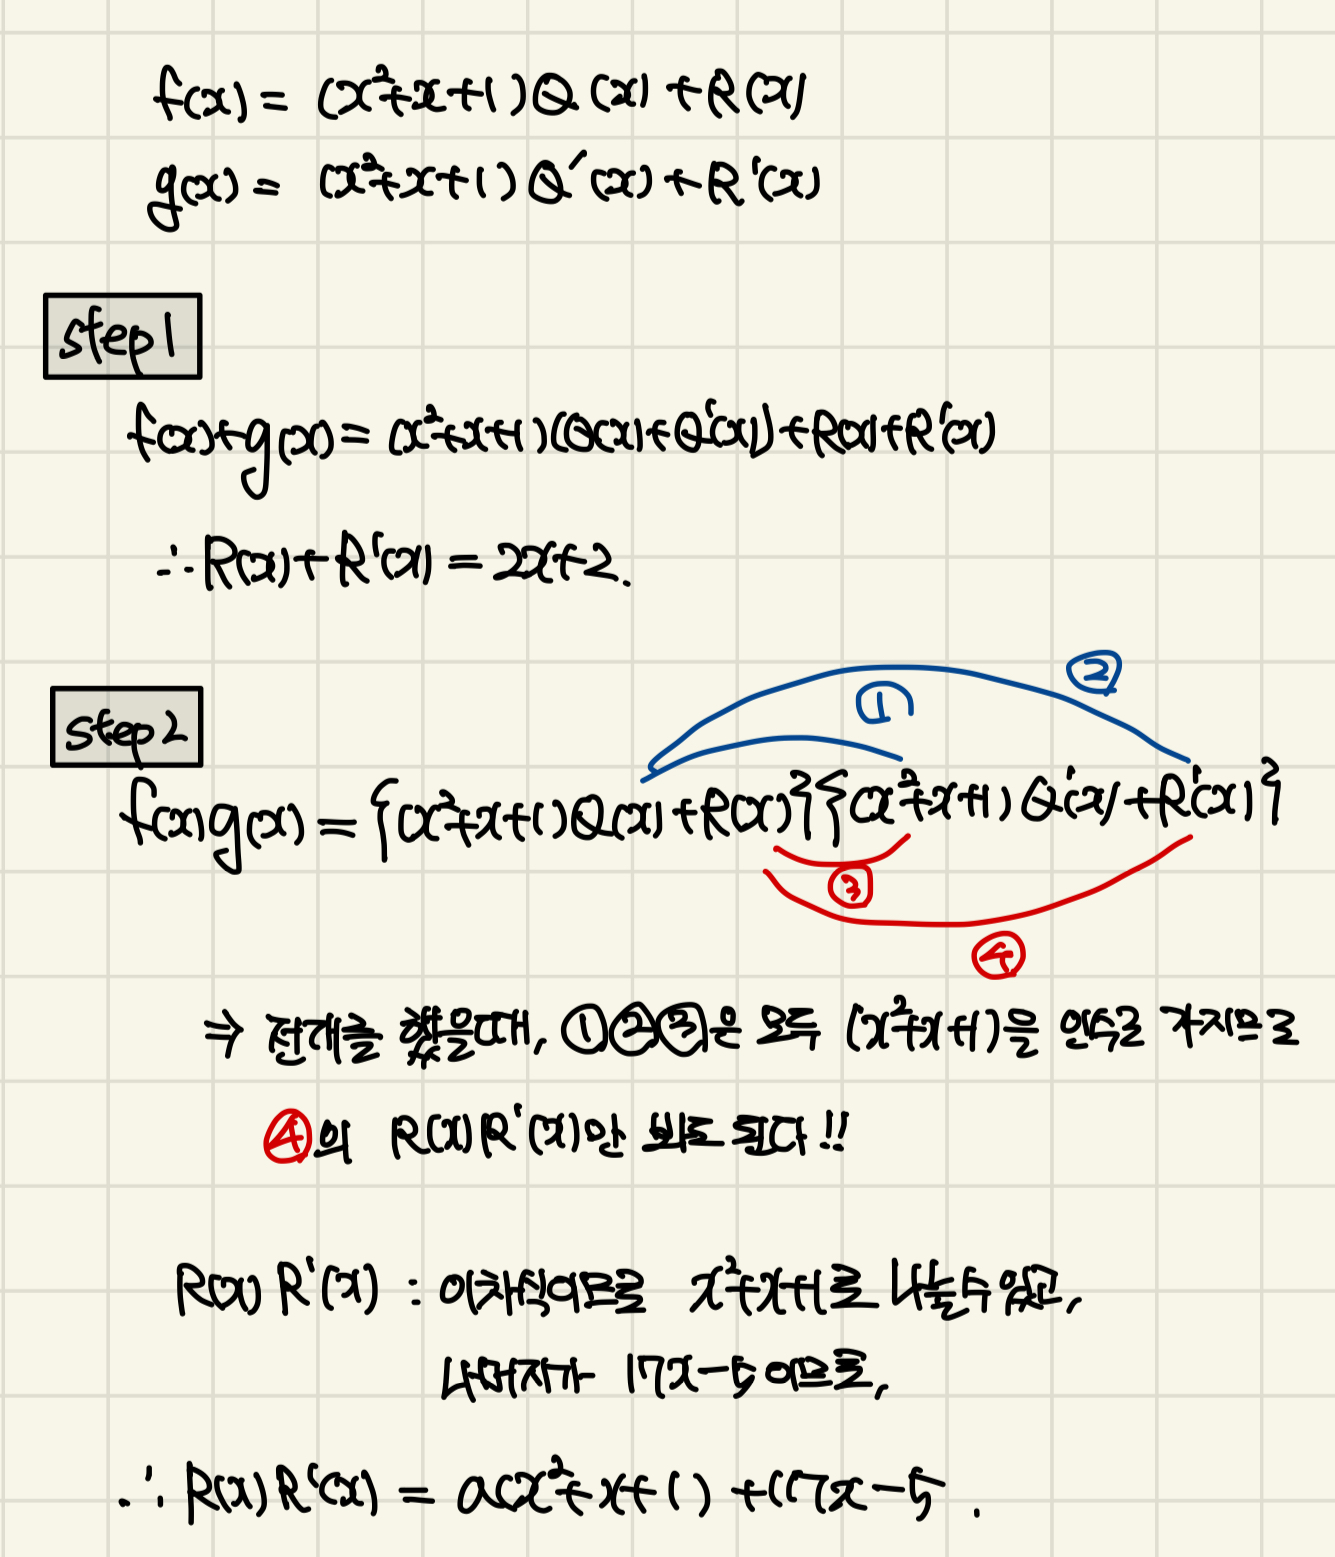 f(x) = (x²+x+1)Q(x)+R(x)
g(x) = (x²+x+1)Q'(x)+R'(x)
step1
f(x)+g(x) = (x²+x+1)(Q(x)+Q'(x))+R(x)+R'(x)
∴ R(x)+R'(x) = 2x+2.
②
①
step2
f(x)g(x) = {(x²+x+1)Q(x)+R(x)}{(x²+x+1)Q'(x)+R'(x)}
③
④
⇒ 전개를 했을때, ①②③은 모두 (x²+x+1)을 인수로 가지므로
④의 R(x)R'(x)만 봐도 된다!!
R(x)R'(x) : 이차식이므로 x²+x+1로 나눌수 있고,
나머지가 17x-5이므로,
∴ R(x)R'(x) = a(x²+x+1)+(17x-5.